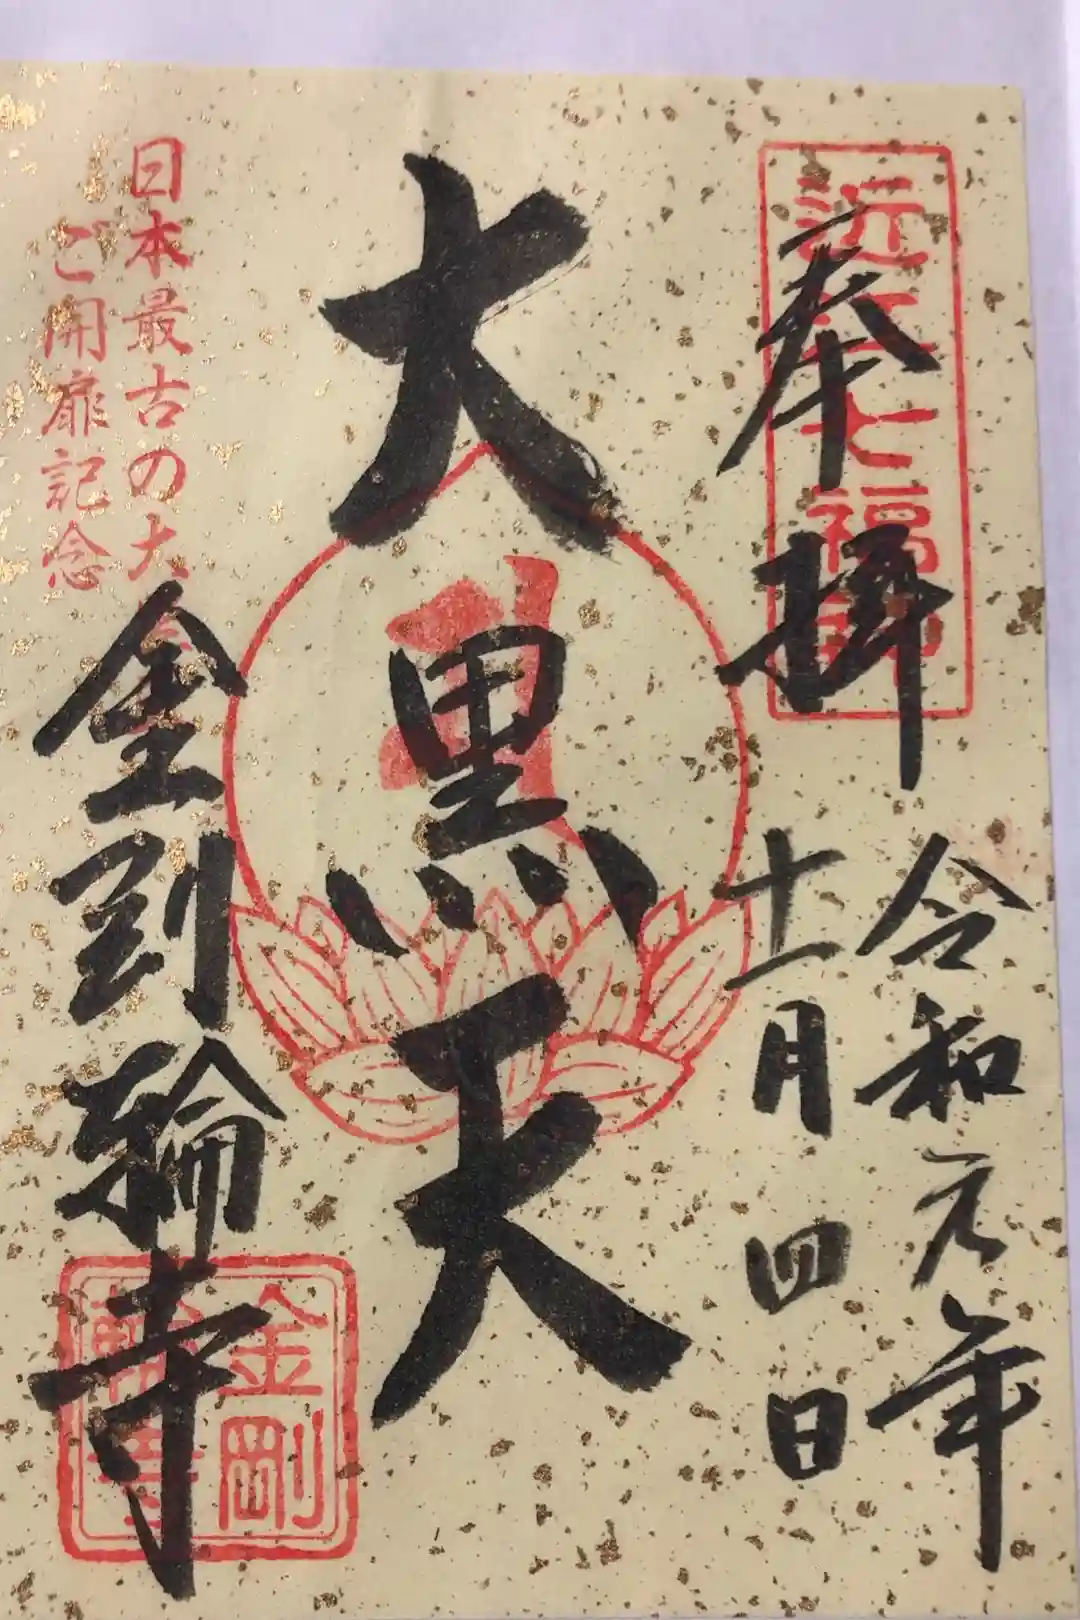 近江七福神
奉拝
令和元年
十一月四日
大黒天
日本最古の大
ご開扉記念
金剛輪寺
金剛
輪寺